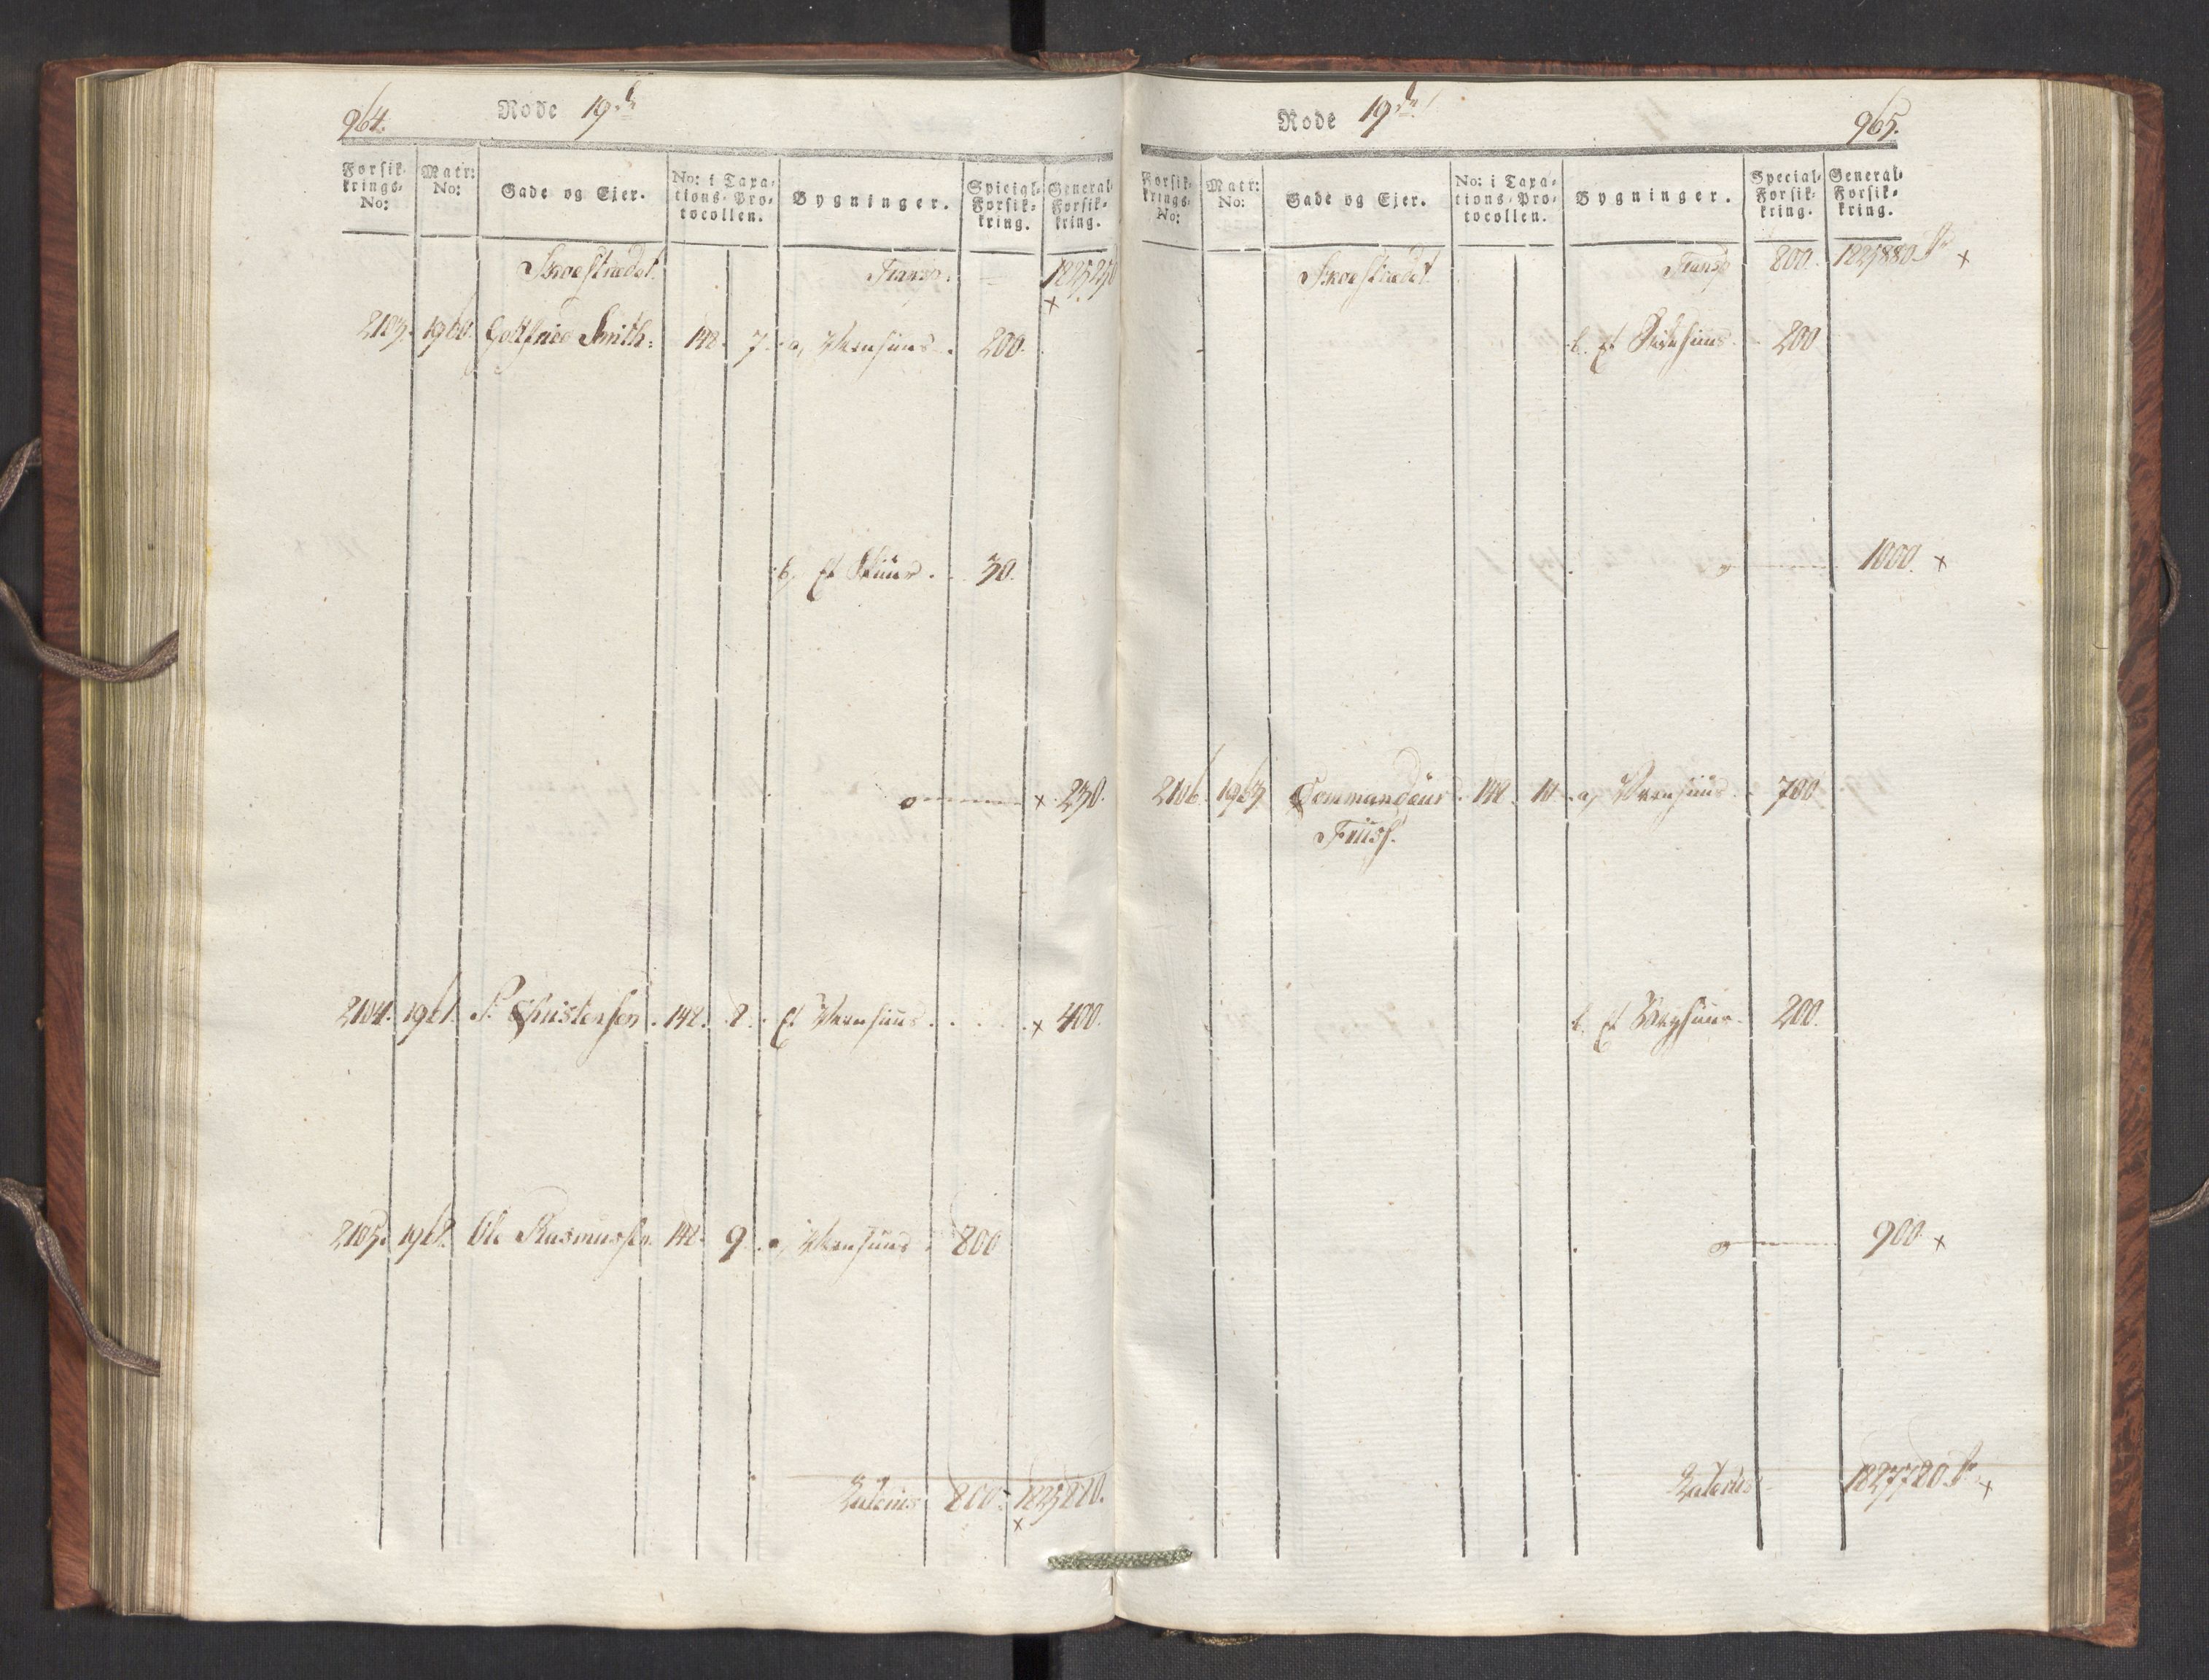 964.
Rode 19de
Forsik-
krings-
No:
Matr:
No:
Gade og Ejer.
No: i Taxa-
tions-Pro-
tocollen.
Bygninger.
Special-
Forsik-
kring.
General-
Forsik-
kring.
Skoestrædet. Transp:
2103. 1960. Gottfried Smith: 148. 7. a, Vaanhuus. 200.
b, Et Skuur. 30.
x 230.
2104. 1961. P. Christensen. 148. 8. Et Vaanhuus. x 400.
2105. 1962. Ole Rasmussen. 148. 9. a, Vaanhuus. 800
Lateris 800. 1825880.
x
Rode 19de
965.
Forsik-
krings-
No:
Matr:
No:
Gade og Ejer.
No: i Taxa-
tions-Pro-
tocollen.
Bygninger.
Special-
Forsik-
kring.
General-
Forsik-
kring.
Skoestrædet. Transp 800. 1825880 x
b. Et 200
1000. x
2106. 1963 Commandeur 148. 10. a, Vaanhuus 700
b. Et 200.
900. x
Lateris 1827780 x